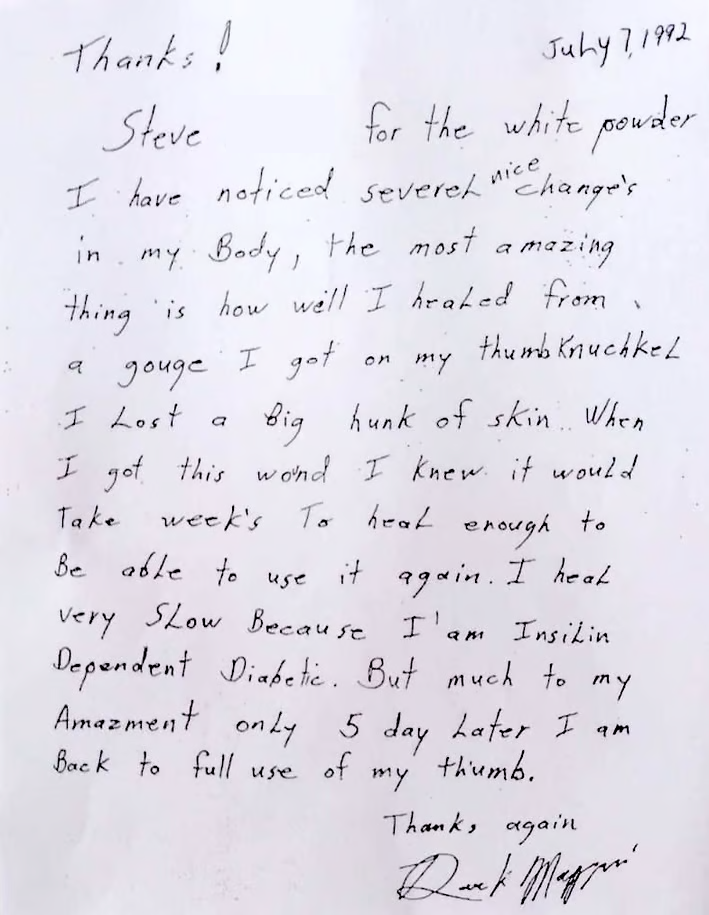 July 7, 1992
Thanks!
Steve for the white powder
I have noticed severel nice change's
in my Body, the most amazing
thing is how well I healed from
a gouge I got on my thumb Knuchkel
I Lost a Big hunk of skin.. When
I got this wond I Knew it would
Take week's To heal enough to
Be able to use it again. I heal
very Slow Because I'am Insilin
Dependent Diabetic. But much to my
Amazment only 5 day Later I am
Back to full use of my thumb.
Thanks again